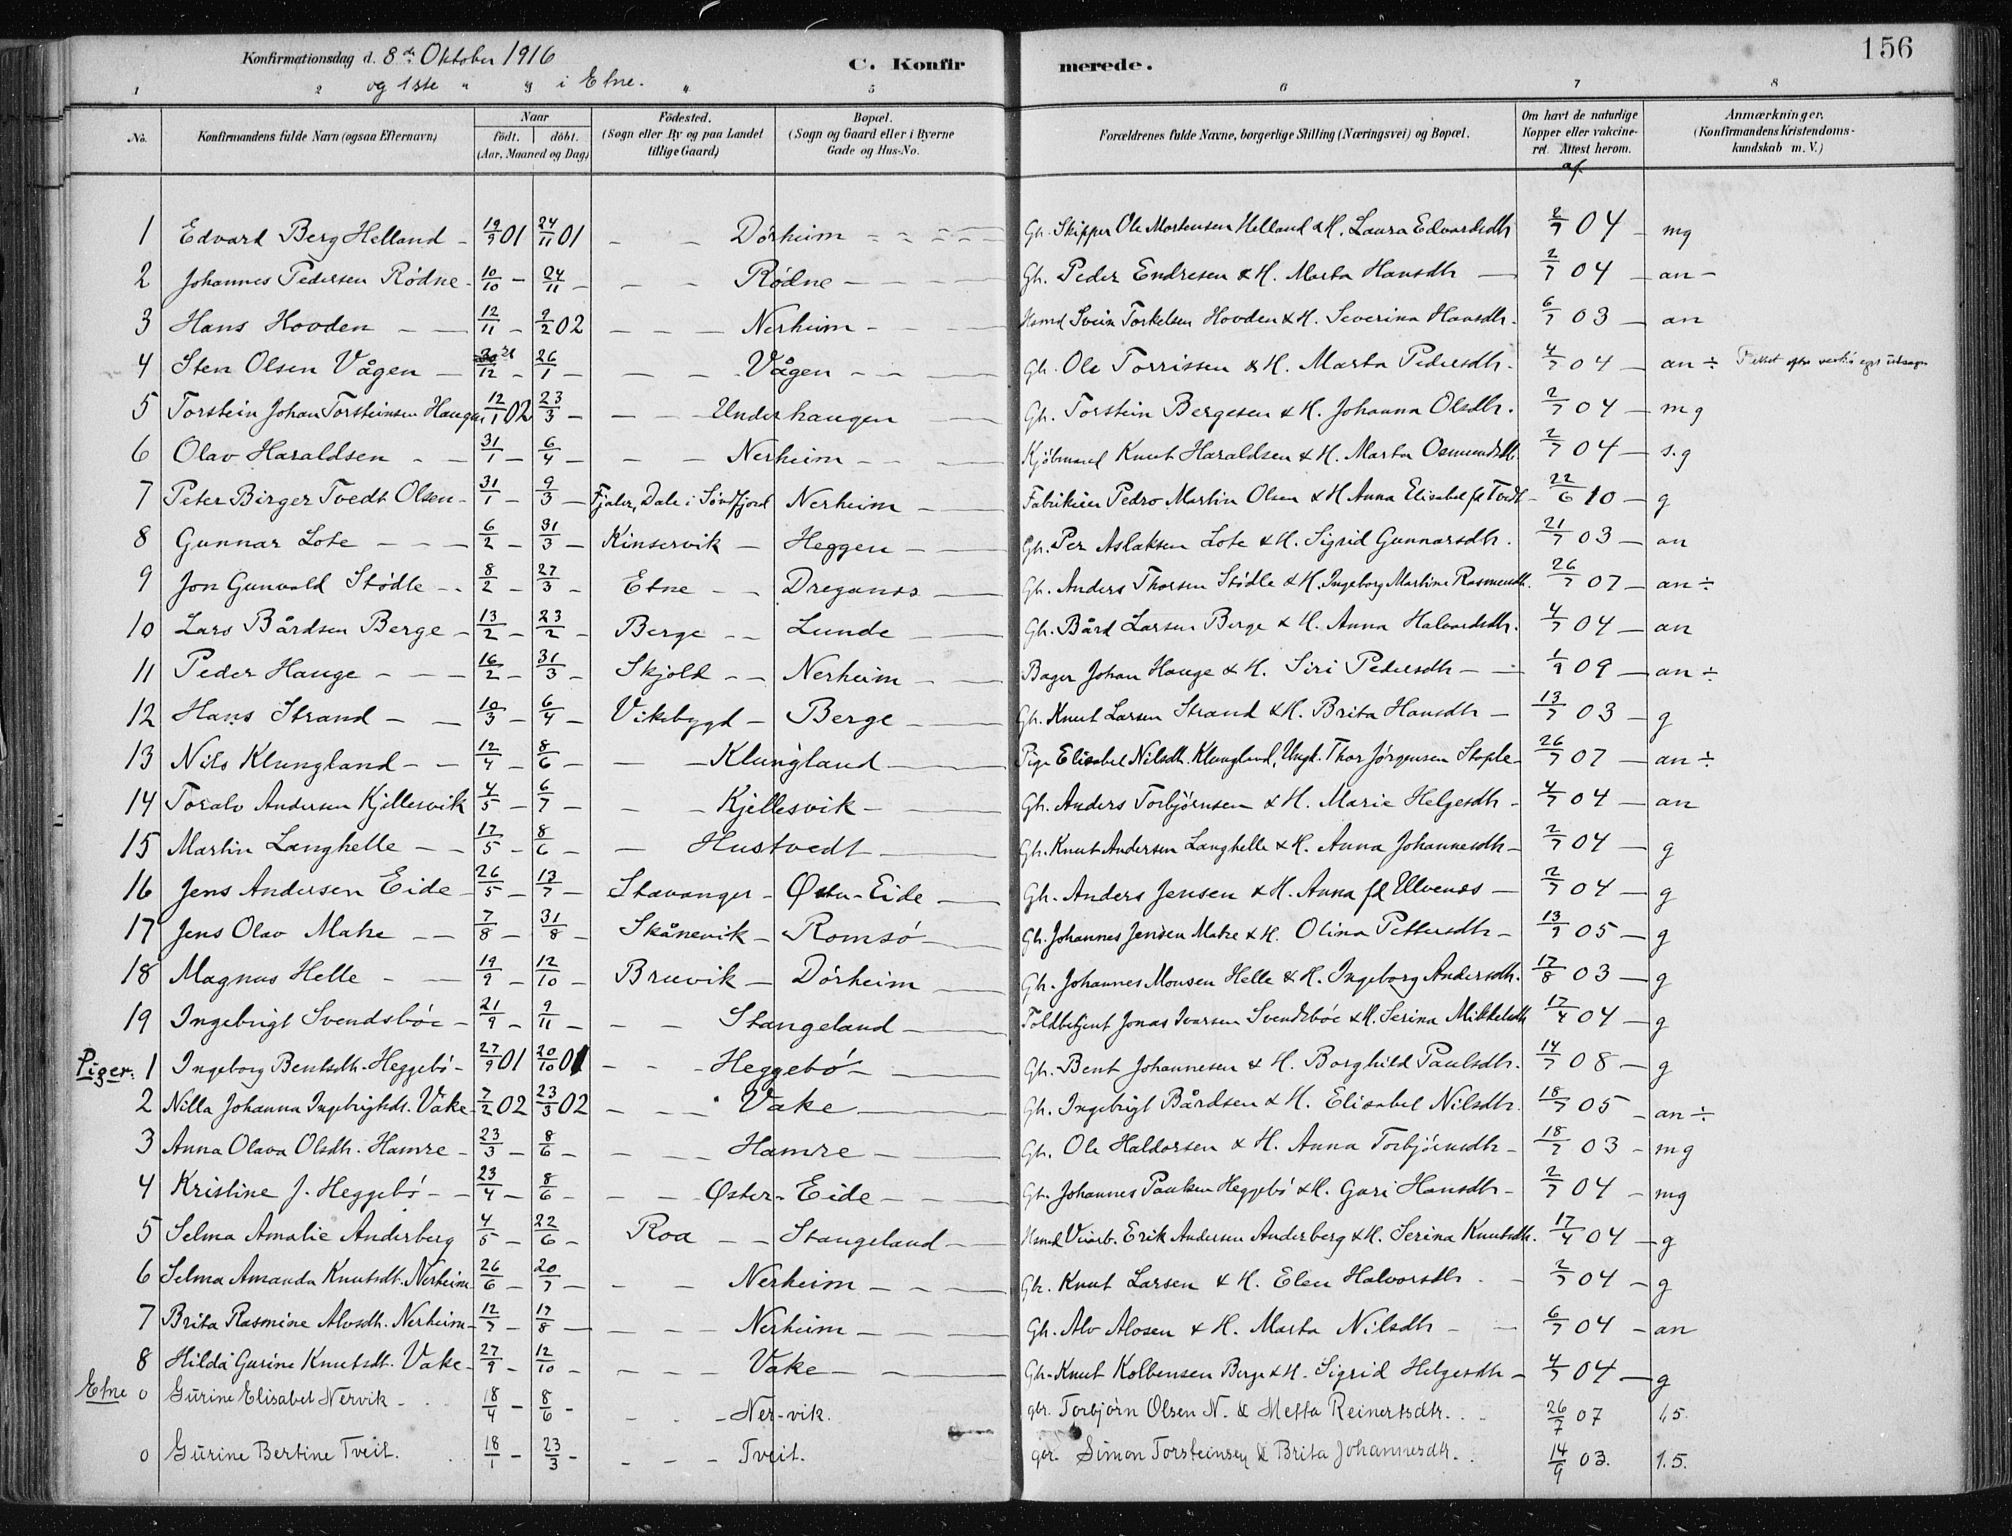 156
Konfirmationsdag d. 8de Oktober 1916 C. Konfirmerede.
og 1ste " " i Etne.
1 2 3 4 5 6 7 8
No. Konfirmandens fulde Navn (ogsaa Efternavn) Naar født. døbt. (Aar, Maaned og Dag) Fødested. (Sogn eller By og paa Landet tillige Gaard) Bopæl. (Sogn og Gaard eller i Byerne Gade og Hus-No. Forældrenes fulde Navne, borgerlige Stilling (Næringsvei) og Bopæl. Om havt de naturlige Kopper eller vakcineret. Attest herom. af. Anmærkninger. (Konfirmandens Kristendomskundskab m. V.)
1 Edvard Berg Helland - 19/9 01 24/11 01 - - Dørheim - - - Gb. Skipper Ole Mortensen Helland & H. Laura Edvardsdtr 2/7 04 - mg
2 Johannes Pedersen Rødne - 10/10 - 24/11 - - - Rødne - - - Gb. Peder Endresen & H. Marta Hansdtr - 2/7 04 - an -
3 Hans Hovden - - 12/11 - 9/2 02 - - - Nerheim - - Hsmd Svein Torkelsen Hovden & H. Severina Hansdtr. 6/7 03 - an
4 Sten Olsen Vågen - 31/12 - 26/1 - - - Vågen - - Gb. Ole Torrissen & H. Marta Pedersdtr. 4/7 04 - an ÷
5 Torstein Johan Torsteinsen Haugen 12/1 02 23/3 - - - Underhaugen - Gb. Torstein Bergesen & H. Johanna Olsdtr. 2/7 04 - mg
6 Olav Haraldsen - - 31/1 - 6/4 - - - Nerheim - - - Kjøbmand Knut Haraldsen & H. Marta Osmundsdtr. 2/7 04 - s.g
7 Peter Birger Tvedt Olsen - 31/1 - 9/3 - Fjaler, Dale i Søndfjord Nerheim - - Fabrikeier Pedro Martin Olsen & H. Anna Elisabet fd Tvedt - 22/6 10 - g
8 Gunnar Lote - - - 6/2 - 31/3 - Kinservik - Heggen - - Gb. Per Aslaksen Lote & H. Sigrid Gunnarsdtr. 21/7 03 - an
9 Jon Gunvald Stødle - - 8/2 - 27/3 - Etne - - Dreganes - Gb. Anders Thorsen Stødle & H. Ingeborg Martine Rasmusdtr. 26/7 07 - an ÷
10 Lars Bårdsen Berge - 13/2 - 23/2 - Berge - - Lunde - Gb. Bård Larsen Berge & H. Anna Halvardsdtr. 4/7 04 - an
11 Peder Hauge - - - 16/2 - 31/3 - Skjold - - Nerheim - - Bager Johan Hauge & H. Siri Pedersdtr - - 1/9 09 - an ÷
12 Hans Strand - - 10/3 - 6/4 - Vikebygd - Berge - - Gb. Knut Larsen Strand & H. Brita Hansdtr - 13/7 03 - g
13 Nils Klungland - - 12/4 - 8/6 - - - Klungland - Pige Elisabet Nilsdtr. Klungland, Ungk. Thor Jørgensen Stople - 26/7 07 - an ÷
14 Toralv Andersen Kjellesvik 4/5 - 6/7 - - - Kjellesvik - - Gb. Anders Torbjørnsen & H. Marie Helgesdtr - 4/7 04 - an
15 Martin Langhelle - - 17/5 - 8/6 - - Hustvedt - Gb. Knut Andersen Langhelle & H. Anna Johannesdtr - 2/7 04 - g
16 Jens Andersen Eide - 26/5 - 13/7 - Stavanger - Øster-Eide - Gb. Anders Jensen & H. Anna fd Ulvenes - 2/7 04 - g
17 Jens Olav Matre - - 7/8 - 31/8 - Skånevik - Romsø - Gb. Johannes Jensen Matre & H. Olina Pettersdtr - 13/7 05 - g
18 Magnus Helle - - 19/9 - 12/10 - Bruvik - Dørheim - Gb. Johannes Monsen Helle & H. Ingeborg Andersdtr. 17/8 03 - g
19 Ingebrigt Svendsbøe - 21/9 - 9/11 - - - Stangeland - Toldbetjent Jonas Ivarsen Svendsbøe & H. Serina Mikkelsdtr 17/4 04 - g
Piger: 1 Ingeborg Bentsdtr. Heggebø - 27/9 01 20/10 01 - - - Heggebø - Gb. Bent Johannesen & H. Borghild Paulsdtr. 14/7 08 - g
2 Nilla Johanna Ingebrigtsdtr. Vake - 7/2 02 23/3 02 - - - Vake - Gb. Ingebrigt Bårdsen & H. Elisabet Nilsdtr. 18/7 05 - an ÷
3 Anna Olava Olsdtr. Hamre - 23/3 - 8/6 - - - - Hamre - Gb. Ole Haldorsen & H. Anna Torbjørnsdtr - 18/7 03 - mg
4 Kristine J. Heggebø - - 23/4 - 8/6 - - - Øster-Eide - - Gb. Johannes Paulsen Heggebø & H. Guri Hansdtr - 2/7 04 - mg
5 Selma Amalie Anderberg 4/5 - 22/6 - Roa - - Stangeland - Hsmd Erik Andersen Anderberg & H. Serina Knutsdtr. 17/4 04 - g
6 Selma Amanda Knutsdt. Nerheim 26/6 - 20/7 - - - Nerheim - - Gb. Knut Larsen & H. Elen Halvorsdtr - 2/7 04 - g
7 Brita Rasmine Alvsdtr. Nerheim - 12/7 - 17/8 - - - Nerheim - - Gb. Alv Alvsen & H. Marta Nilsdtr - 6/7 04 - an
8 Hilda Gurine Knutsdt. Vake - 27/9 - 12/10 - - - - Vake - - Gb. Knut Kolbensen Berge & H. Sigrid Helgesdtr - 4/7 04 - g
Etne 0 Gurine Elisabet Nervik - 18/4 - 8/6 - - - - Ner-vik. gbr. Torbjørn Olsen N. & Metta Reinertsdtr. 26/7 07 1,5.
0 Gurine Bertine Tveit. 18/1 - 23/3 - - - - Tveit. gbr. Simon Torsteinsen & Brita Johannesdtr. 14/9 03. 1.5.